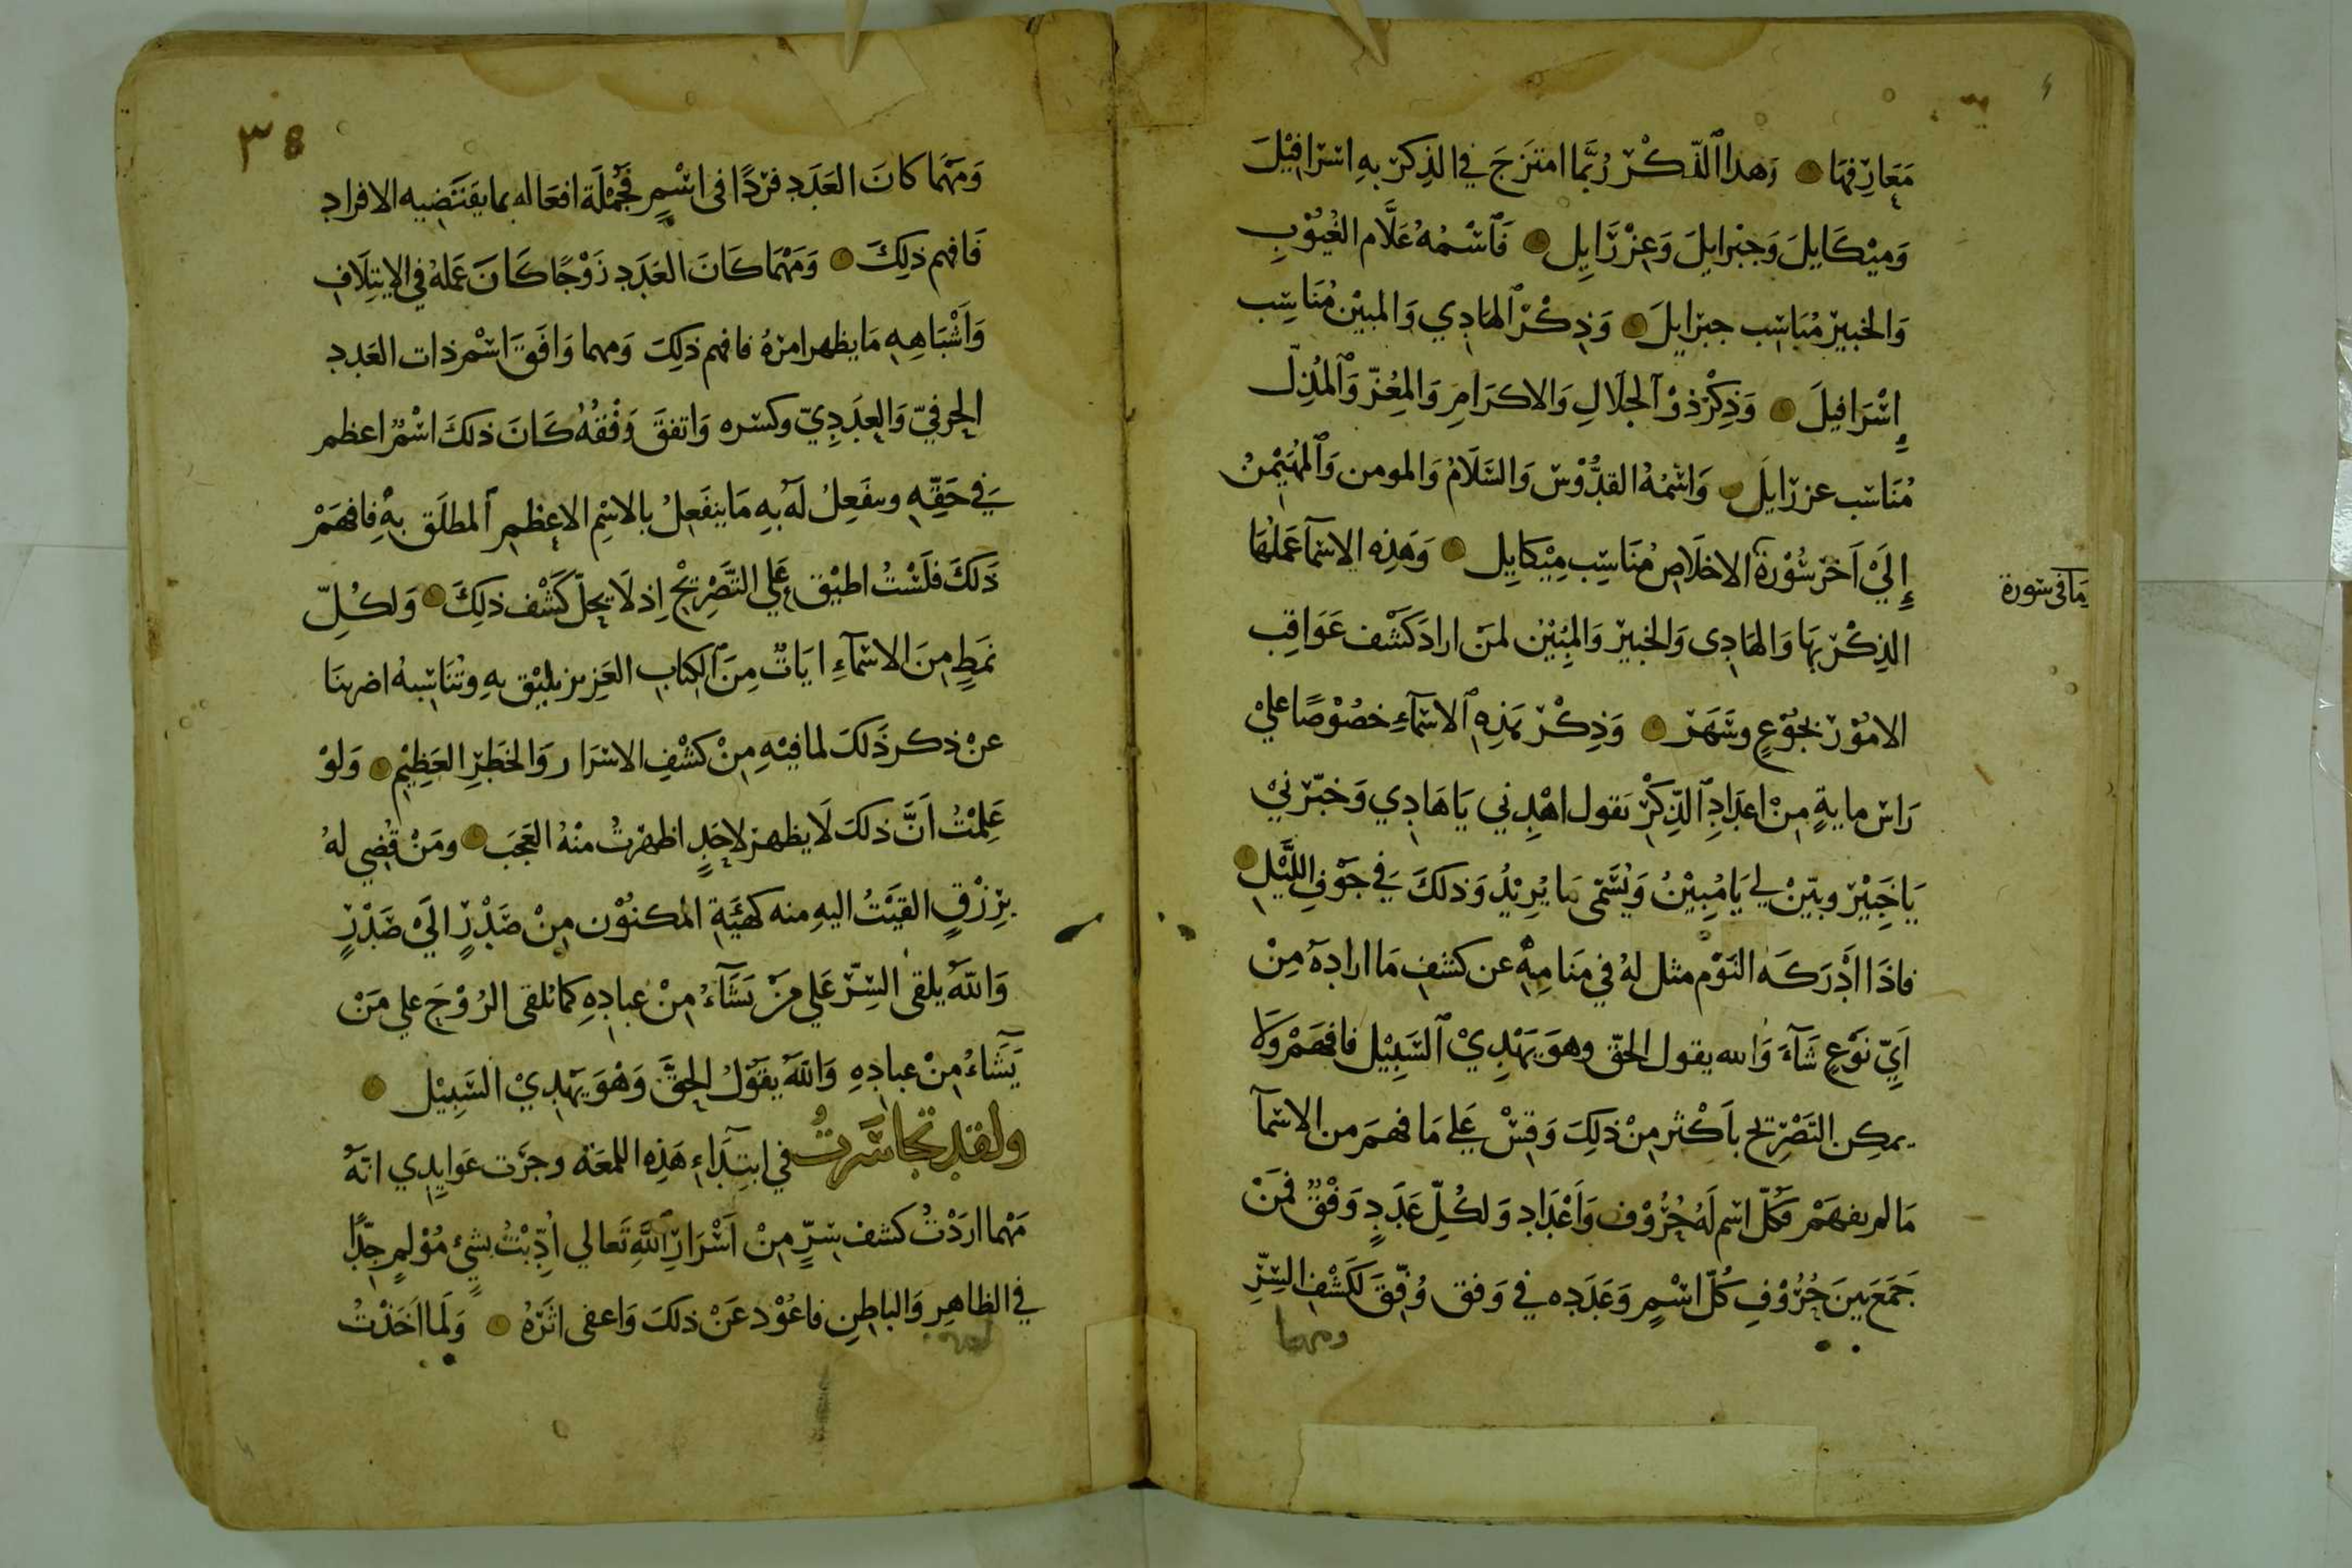 مَعَارِفِهَا وَهذا الذِّكْرُ رُبَّمَا امتَزَجَ في الذِكر بِهِ اسْرَافِيْلَ
وَمِيْكَايلَ وَجبْرايلَ وَعِزْرَايِل فَاسْمُهُ عَلَّام الغُيُوْبِ
وَالخبيرْ مُنَاسِب جبرَايلَ وَذِكْرُ الهَادِي وَالمبيْن مُنَاسِب
إِسْرَافيلَ وَذِكْرُ ذوْ الجلَالِ وَالاكرَامِ وَالمِعُزّ وَالمُذِلّ
مُنَاسب عزرَايلَ وَاسْمُهُ القدُّوْس وَالسَّلَامُ وَالمومن وَالمهَيْمِنُ
إِلَيْ اَخر سُوْرَة الاخلَاصِ مُنَاسِب مِيْكايِل وَهَذِه الاسمآ عَمَلُهَا
مَا في سورة
الذِكْر بهَا وَالهَادِى وَالخبيرْ وَالمِبُيْن لمَنْ ارادَ كَشْف عَوَاقِب
الامُوْر بجُوْعٍ وسَهَر وَذِكْر هَذِهِ الاسمآءِ خصُوْصًا عليْ
رَاس مايةٍ مِنْ اعدَادِ الذِّكْر تقول اهْدِني يَا هَادِي وَخبّرْنيْ
يَا خَبِيْر وبيّنْ لي يَا مُبِيْنُ وَيُسَمّى مَا يُرِيْدُ وَذلكَ في جَوْفِ اللَّيْلِ
فاذَا اَدْرَكَه النَوْم مثل لهُ في مَنَامِهِ عن كشفِ مَا ارادهُ مِنْ
اَيّ نَوْعٍ شَآءَ وَالله يقول الحقّ وهوَ يَهْدِيْ السَّبِيْل فافهَمْ وَلَا
يمكِن التَصْرِيح باَكْثر مِنْ ذلِكَ وَقِسْ عَلي مَا فهمَ من الاسمآ
مَا لم يفهَمْ فكُلّ اسْم لَهُ حُرُوْف وَاَعْدَاد وَلكُلِّ عَدَدٍ وَفْقٌ فمَنْ
جَمَعَ بَينَ حُرُوْفِ كُلّ اسْمٍ وَعَدَدِه في وَفق وُفِّقَ لكَشْفِ السِّرِّ
ومهما
٣٨
وَمَهْمَا كانَ العَدَد فَرْدًا فى اسْمٍ فجُمْلَة افعَاله بما يقتَضِيه الافراد
فَافهم ذلِكَ وَمَهْمَا كَانَ العَدَد زَوْجًا كَانَ عَمَلهُ في الايتِلَاف
وَاَشْبَاهِهِ مَا يظهر امرُهُ فافهم ذلِكَ وَمهما وَافَقَ اسْم ذات العَدد
الحرفيّ وَالعِدَدِيّ وكسْره وَاتفقَ وَفْقُهُ كَانَ ذلكَ اسْمٌ اعظم
في حَقِّهِ وينفَعِلُ لَهُ بِهِ مَا ينفَعِلُ بالاسْمِ الاعظمِ المطلَق بهِ فافهَمْ
ذَلكَ فلَسْتُ اطيْق عَلي التَّصْرِيْح اِذ لَا يحلّ كَشْف ذلِكَ وَلكُلِّ
نمَطٍ مِنَ الاسمآءِ ايَاتٌ مِنَ الكِتَاب العَزِيز يليْق بهِ وتُنَاسِبهُ اضربنَا
عنْ ذكر ذَلكَ لما فيْهِ مِنْ كشْفِ الاسْرَار وَالخطَرِ العَظِيْم وَلوْ
عَلِمْتُ اَنَّ ذلكَ لَا يظهر لاحَدٍ اظهرْتُ منْهُ العَجَبَ ومَنْ قُضِي لهُ
برِزْقٍ القيَتْ اليهِ منه كهيَئَة المكنُوْن مِنْ صَدْرٍ الَيْ صَدْرٍ
وَاللهُ يلقى السِّرّ عَلي مَنْ يَشَآءُ مِنْ عبادِهِ كما تلقى الرُوْح علي مَنْ
يَّشَاءُ مِنْ عبادِهِ وَاللهُ يقُوْلُ الحقَّ وَهْوَ يَهْدِيْ السَّبِيْل
ولقد تجاسَرتُ في ابتِدَاءِ هَذِه اللمعَة وجرَت عَوَايدِي انهُ
مَهْما ارَدْتُ كشف سِرٍّ مِنْ اَسْرَارِ اللهِ تَعالي اُدِّبْتُ بشيْءٍ مُوْلمٍ جِدًّا
في الظاهِر وَالباطِنِ فاعُوْد عَنْ ذلكَ وَاعفى اثرَهُ وَلَما اَخَذْتُ